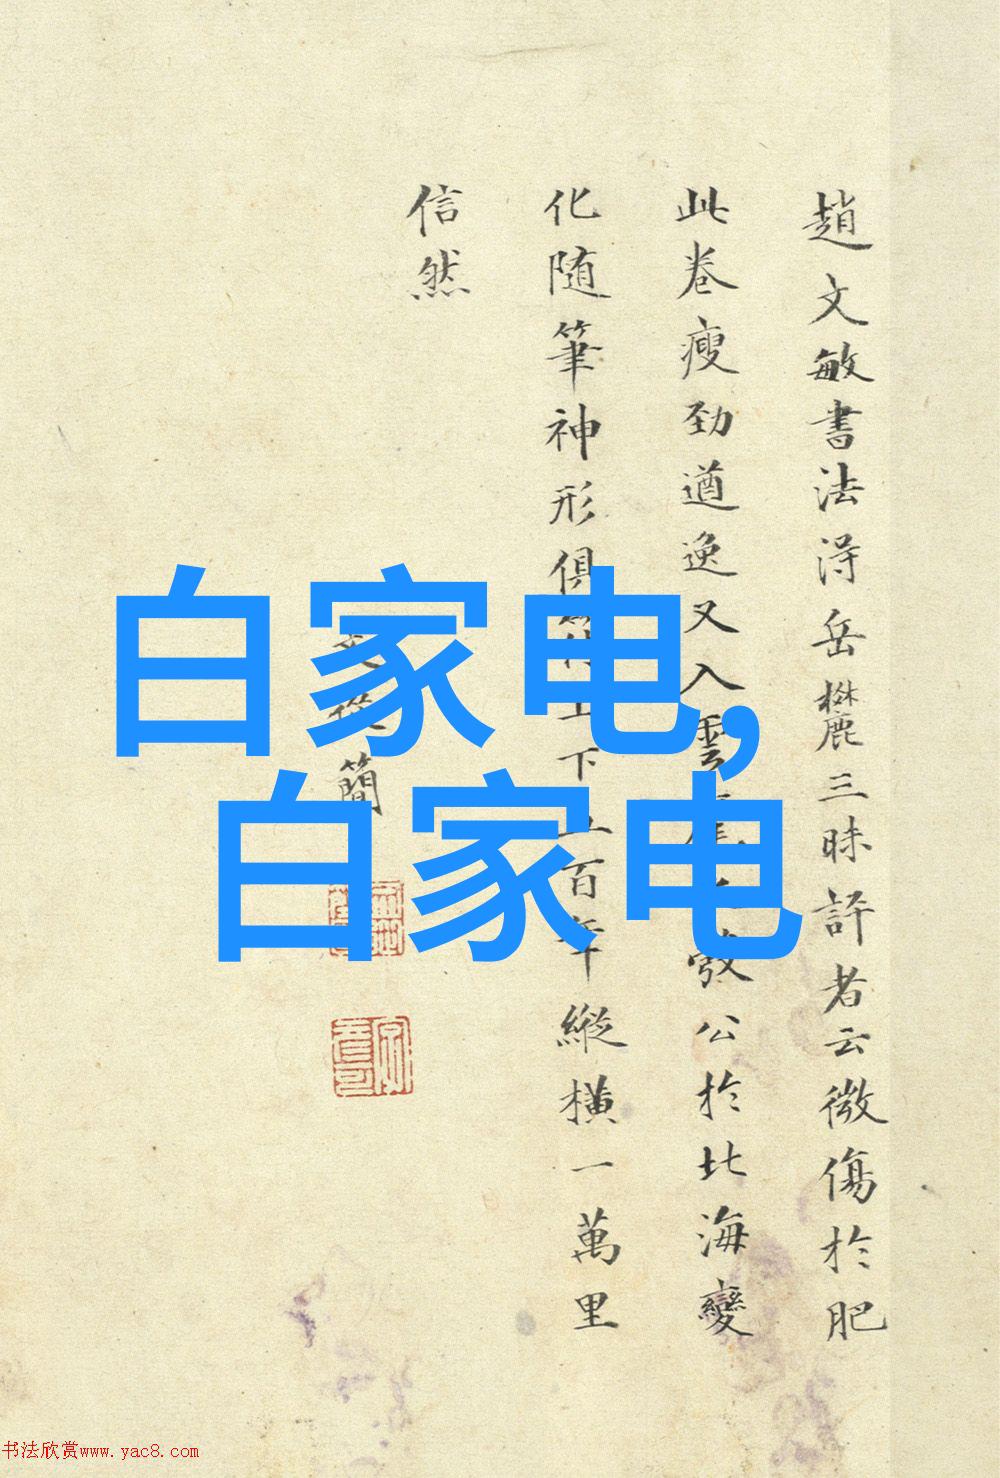 趙文敏書法淂岳麓三昧評者云微傷於肥
此卷瘦劲遒逸又入雲公於北海變
化随筆神形俱下五百年縱橫一萬里
信然
文從簡
白家电,
白家电
书法欣赏www.yac8.com